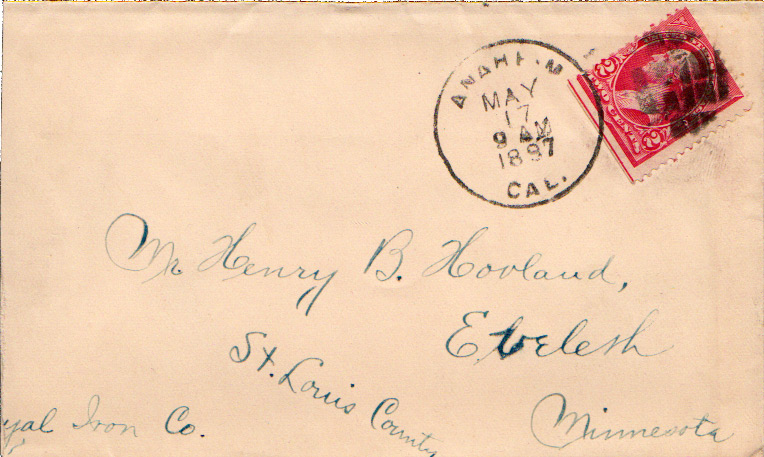 ANAHEIM
MAY
17
9 AM
1897
CAL.
2 TWO CENTS 2
Mr. Henry B. Hovland,
Evelesh
St. Louis County
Minnesota
yal Iron Co.